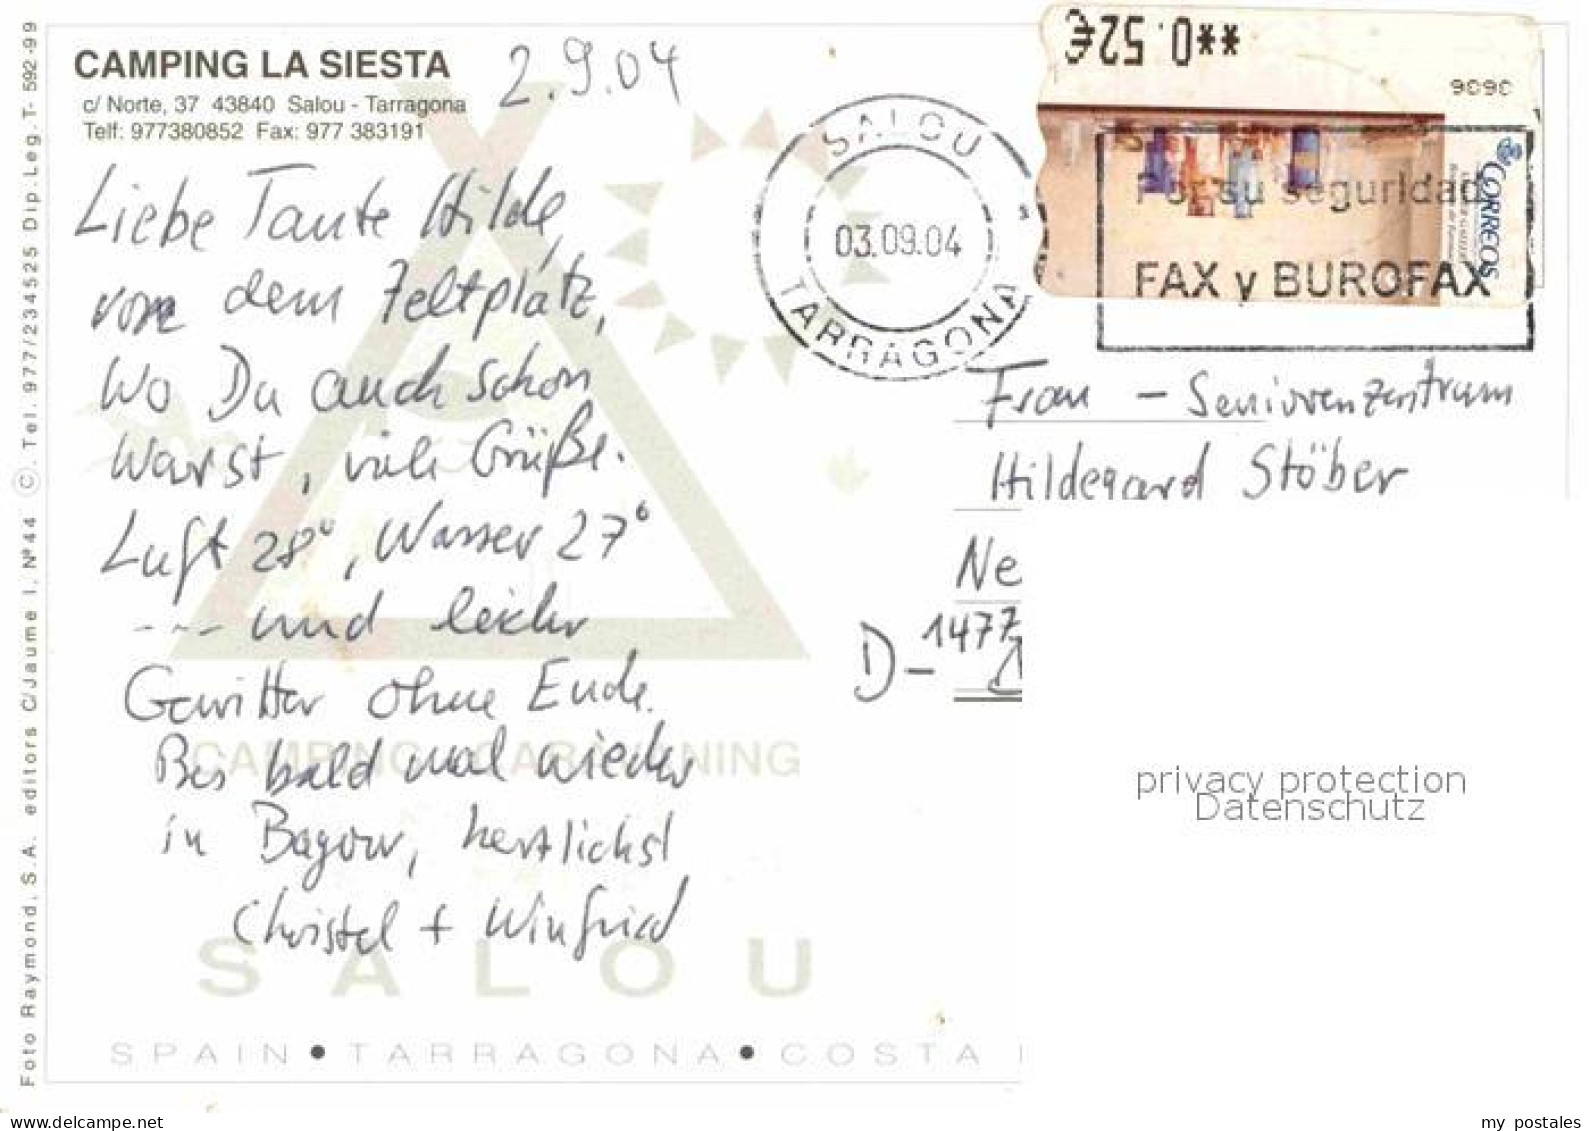 CAMPING LA SIESTA
c/ Norte, 37 43840 Salou - Tarragona
Telf: 977380852 Fax: 977 383191
2.9.04
Liebe Tante Hilde,
von dem Zeltplatz,
Wo Du auch schon
warst, viele Grüße.
Luft 28°, Wasser 27°
--- und leider
Gewitter ohne Ende.
Bis bald mal wieder
in Bagow, herzlichst
Christel + Winfried
CAMPING CARAVANING
SALOU
SPAIN • TARRAGONA • COSTA
Foto Raymond, S.A. editors C/Jaume I, Nº 44 C. Tel. 977/234525 Dip. Leg. T- 592-99
**0.52€
9090
CORREOS
SALOU
03.09.04
TARRAGONA
Por su seguridad
FAX y BUROFAX
Frau - Seniorenzentrum
Hildegard Stöber
Ne
D-1477
privacy protection
Datenschutz
my-postcard.net
my postales